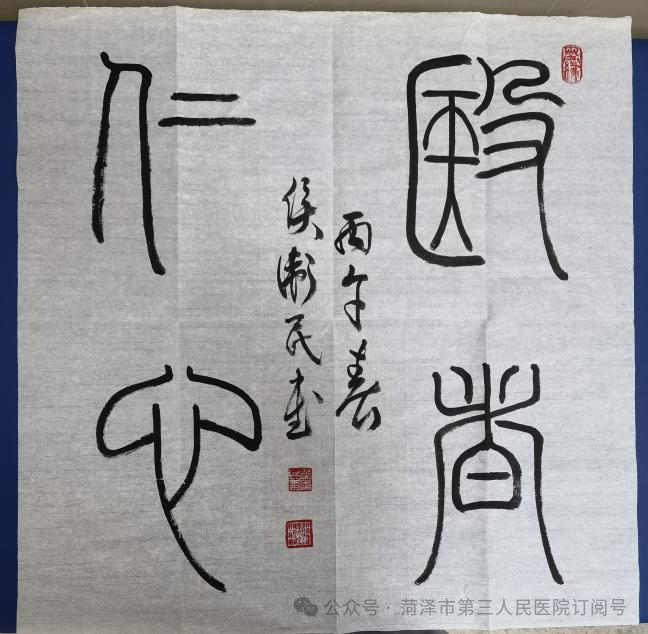 殹者
仁心
丙午春
侯衛民書
公众号 · 菏泽市第三人民医院订阅号